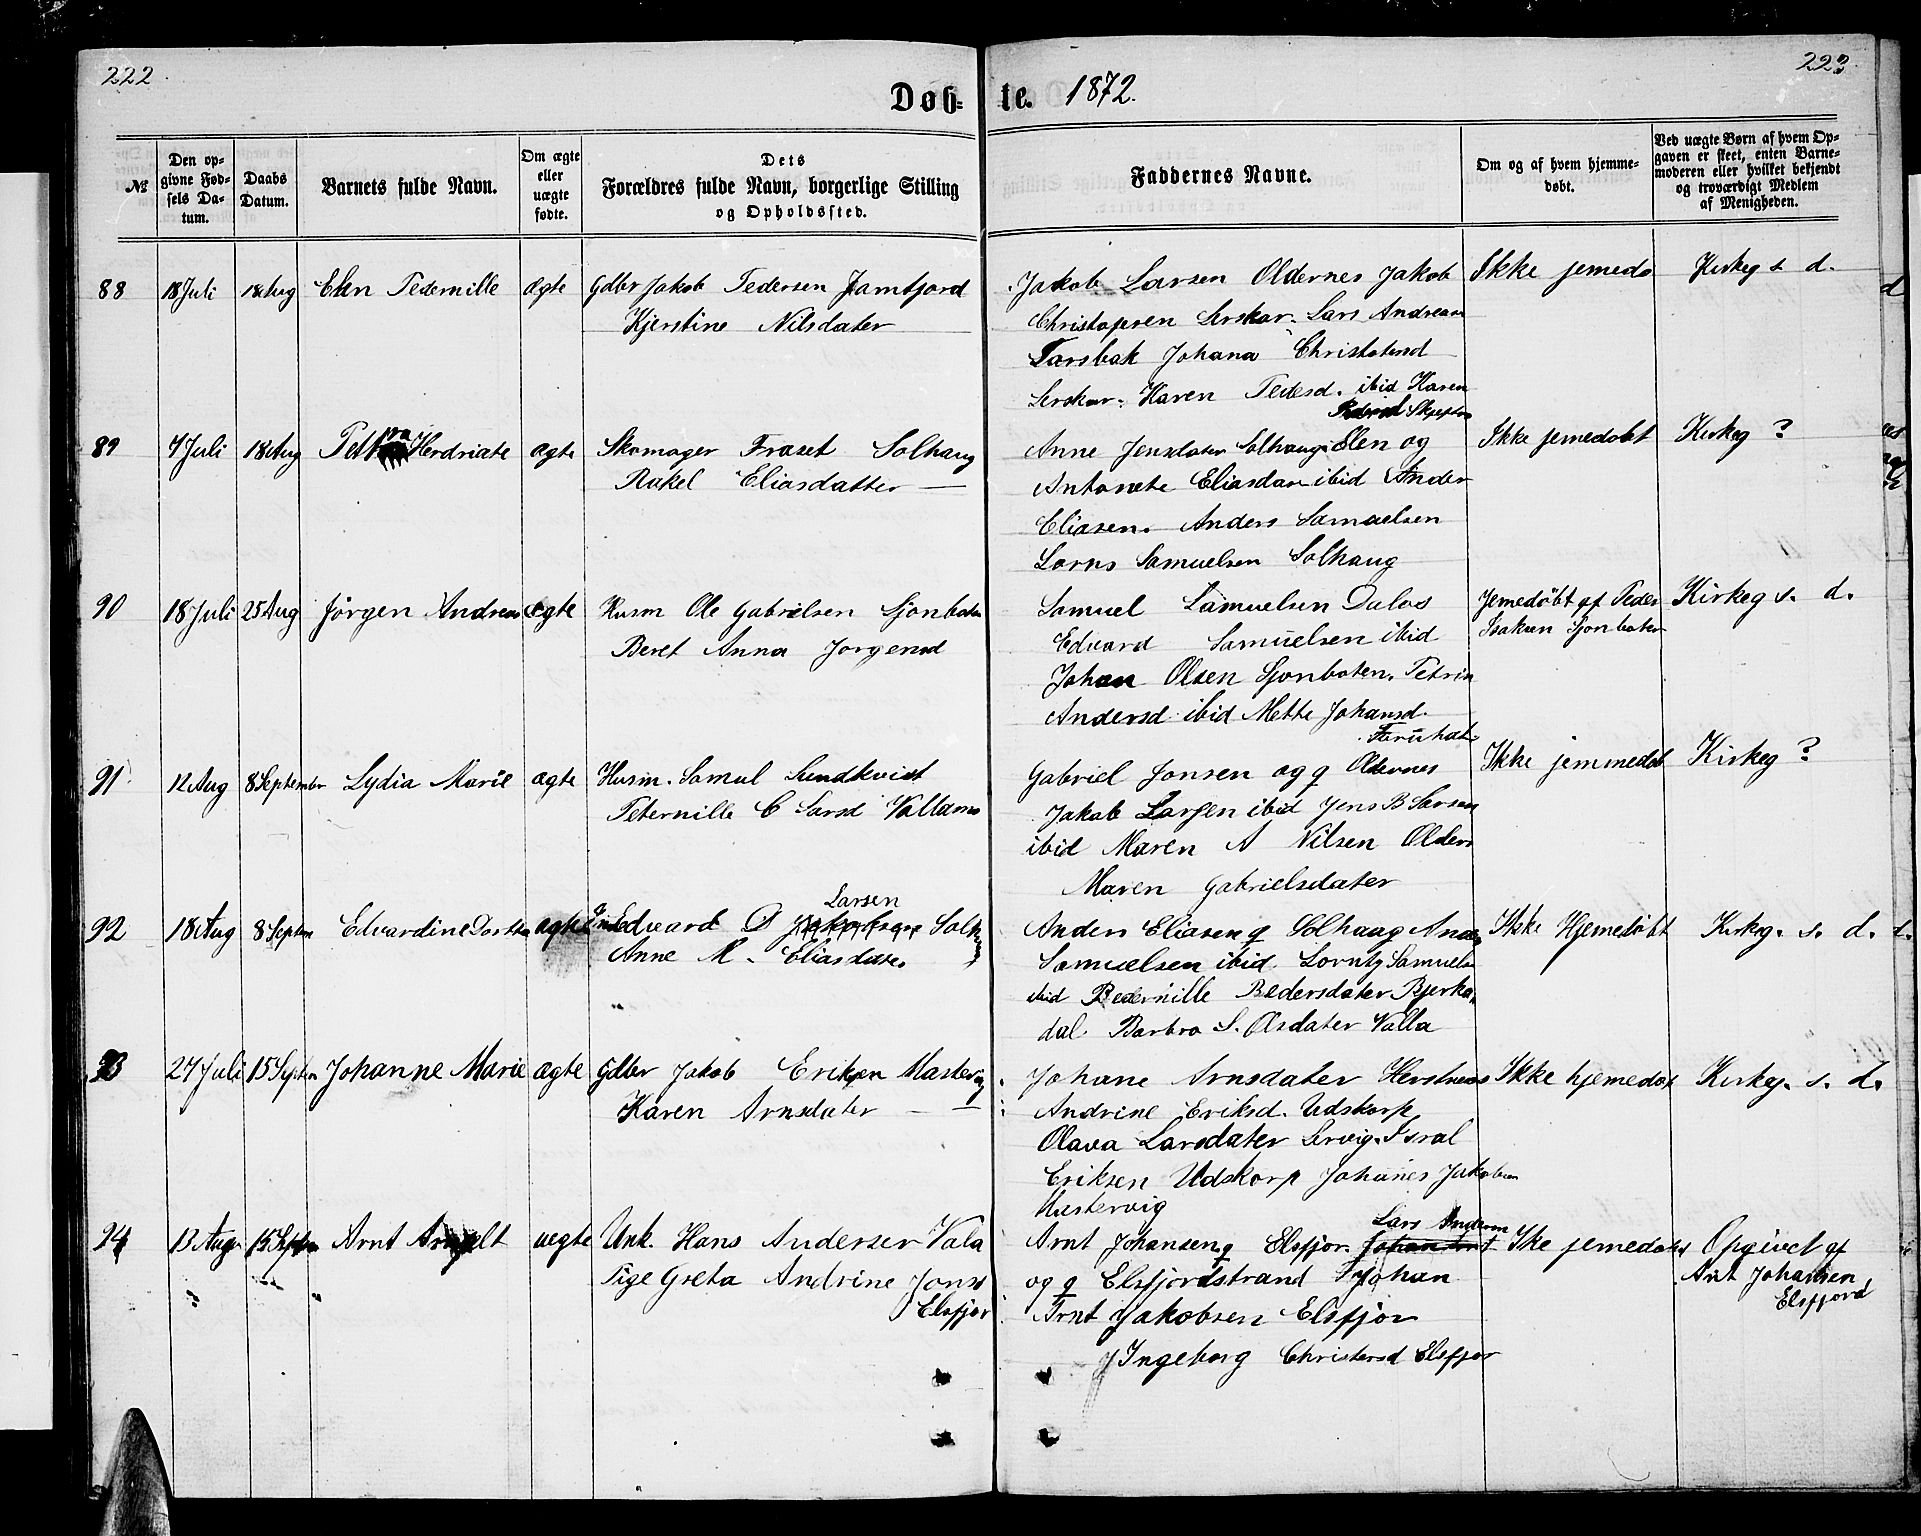 222
223
Døb-
te. 1872.
№
Den op-
givne Fød-
sels Da-
tum.
Daabs
Datum.
Barnets fulde Navn.
Om ægte
eller
uægte
fødte.
Dets
Forældres fulde Navn, borgerlige Stilling
og Opholdssted.
Faddernes Navne.
Om og af hvem hjemme-
døbt.
Ved uægte Børn af hvem Op-
gaven er skeet, enten Barne-
moderen eller hvilket bekjendt
og troværdigt Medlem
af Menigheden.
88 18 Juli 18 Aug Elen Pedernille ægte Gdbr Jakob Pedersen Jamtjord
Kjerstine Nilsdater
Jakob Larsen Oldernes Jakob
Christopsen Lerskar. Lars Andreas
Johana
Lerskar. Karen Pedesd. ibid Karen
Ikke jemedø
Kirkeg s. d.
89 7 Juli 18 Aug Petra ægte Skomager Solhaug
Rakel Eliasdatter
Anne Jensdater Solhaug Elen og
Antonete ibid Ander
Eliasen. Anders Samuelsen
Samuelsen Solhaug
Ikke jemedøbt
Kirkeg ?
90 18 Juli 25 Aug Jörgen Andreas ægte Husm Ole Gabrielsen Sjonboten
Beret Anna Jorgensd
Samuel Samuelsen Dalos
Edvard Samuelsen ibid
Johan Olsen Sjonboten. Petrin
Andersd. ibid Mette Johansd.
Jemedøbt af Peder
Isaksen Sjonboten
Kirkeg s. d.
91 12 Aug 8 September Lydia Marie ægte Husm. Samul Lundkvist
Peternille C Larsd
Gabriel Jonsen og q Oldernes
Jakob Larsen ibid Jens B Larsen
ibid Maren A Nilsen Oldern
Maren Gabrielsdater
Ikke jemmedøb
Kirkeg ?
92 18 Aug 8 Septem Edvardine ægte Edvard D Larsen
Anne M. Eliasdatter
Anders Eliasen q Solhaug
Samuelsen ibid. Samuels
ibid Pedernille Pedersdater
dal. Barbro S. Olsdater Valla
Ikke Hjemedøbt
Kirkeg. s. d.
93 27 Juli 15 Septem Johanne Marie ægte Gdbr Jakob Eriksen
Karen Arnsdater
Johane Arnsdater
Andrine Eriksd. Udskorp
Olava Larsdater Isral
Eriksen Udskorp Johanes Jakobsen
Mastervig
Ikke hjemedøb
Kirkeg. s. d.
94 13 Aug 15 Septem Arnt uegte Unk. Hans Andersen Vala
Pige Greta Andrine Jonsd
Elsfjor
Arnt Johansen q Elsfjor. Lars Andersen
og q Elsfjordstrand Johan
Arnt Jakobsen Elsfjor
Ingeborg Christensd Elsfjor
Ike jemedøbt
Opgivet af
Arnt Johansen
Elsfjord